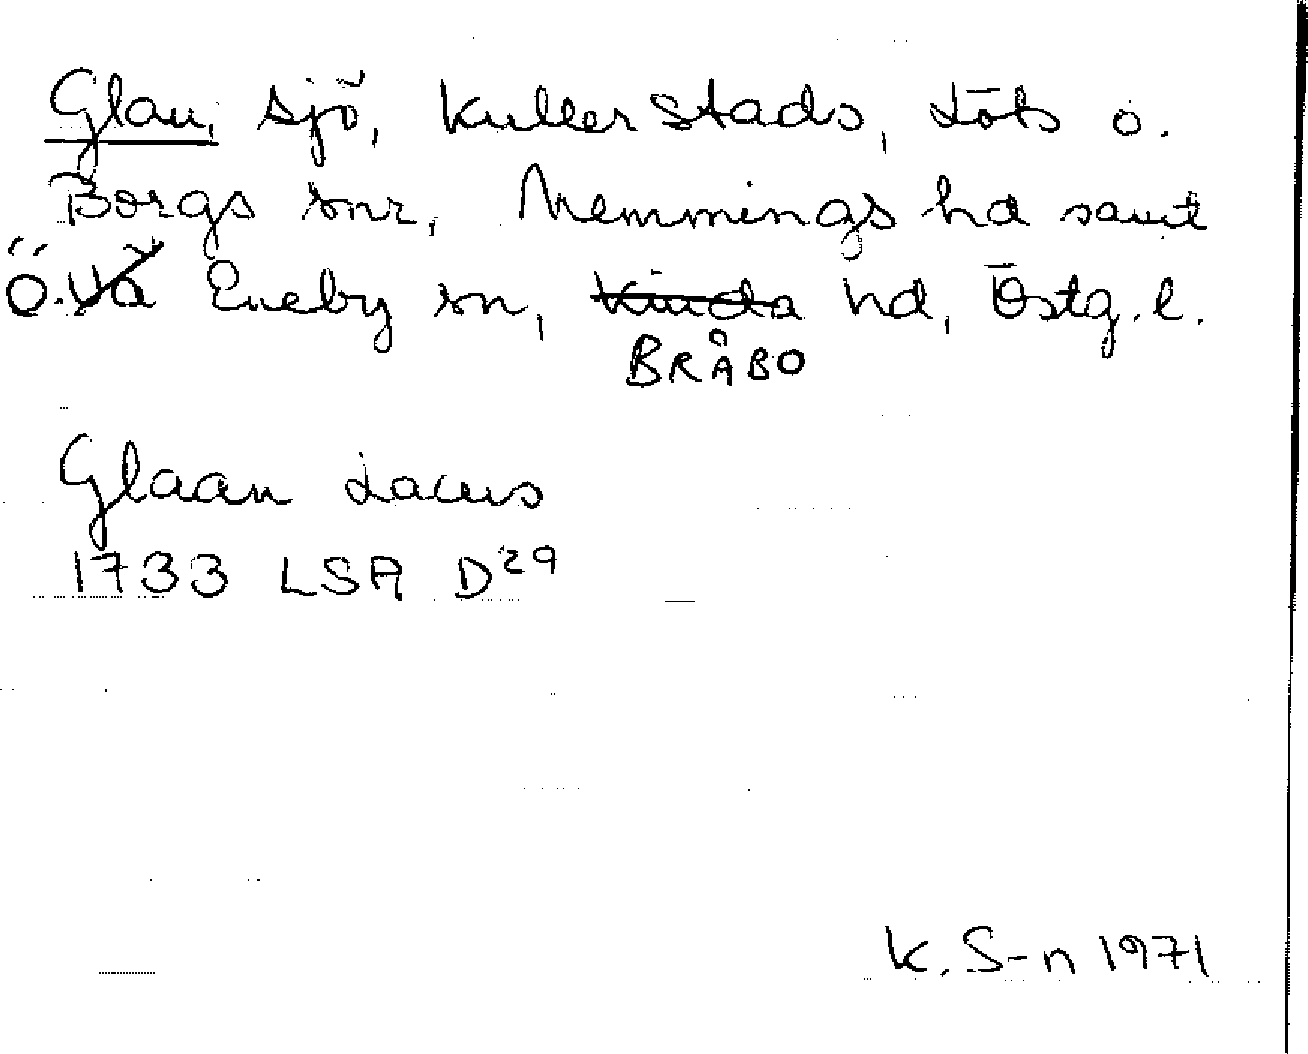 Glan, sjö, Kullerstads, Löts o.
Borgs snr, Memmings hd samt
Ö. Vå Eneby sn, Kinda hd, Östg. l.
BRÅBO
Glaan Lacus
1733 LSA D29
K. S-n 1971